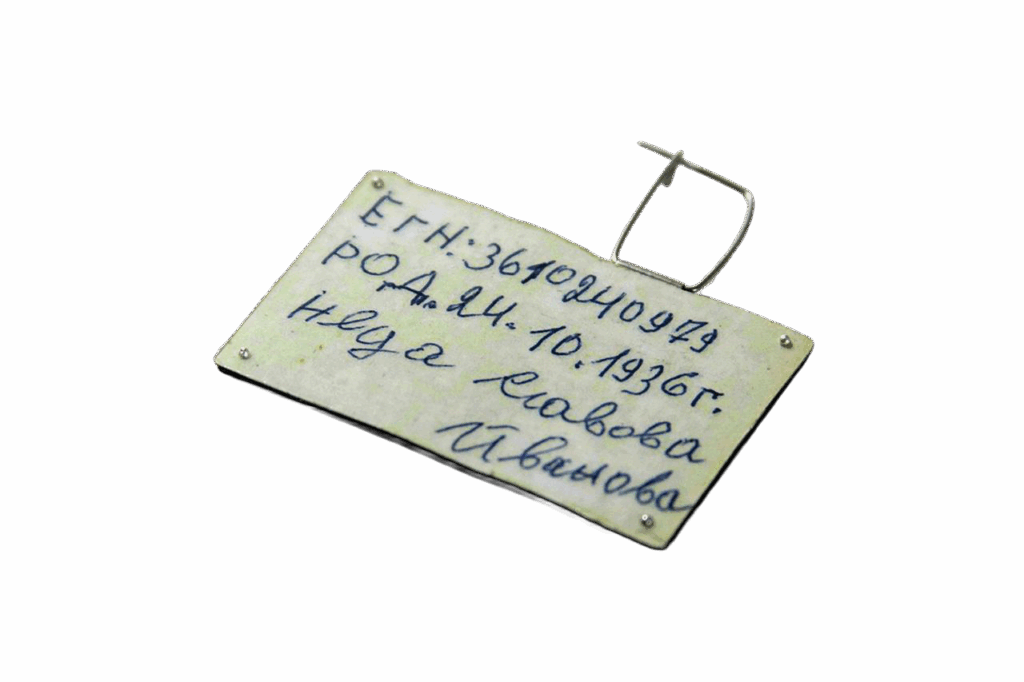 ЕГН:3610240979
РОД.24.10.1936г.
Неда Славова
Иванова